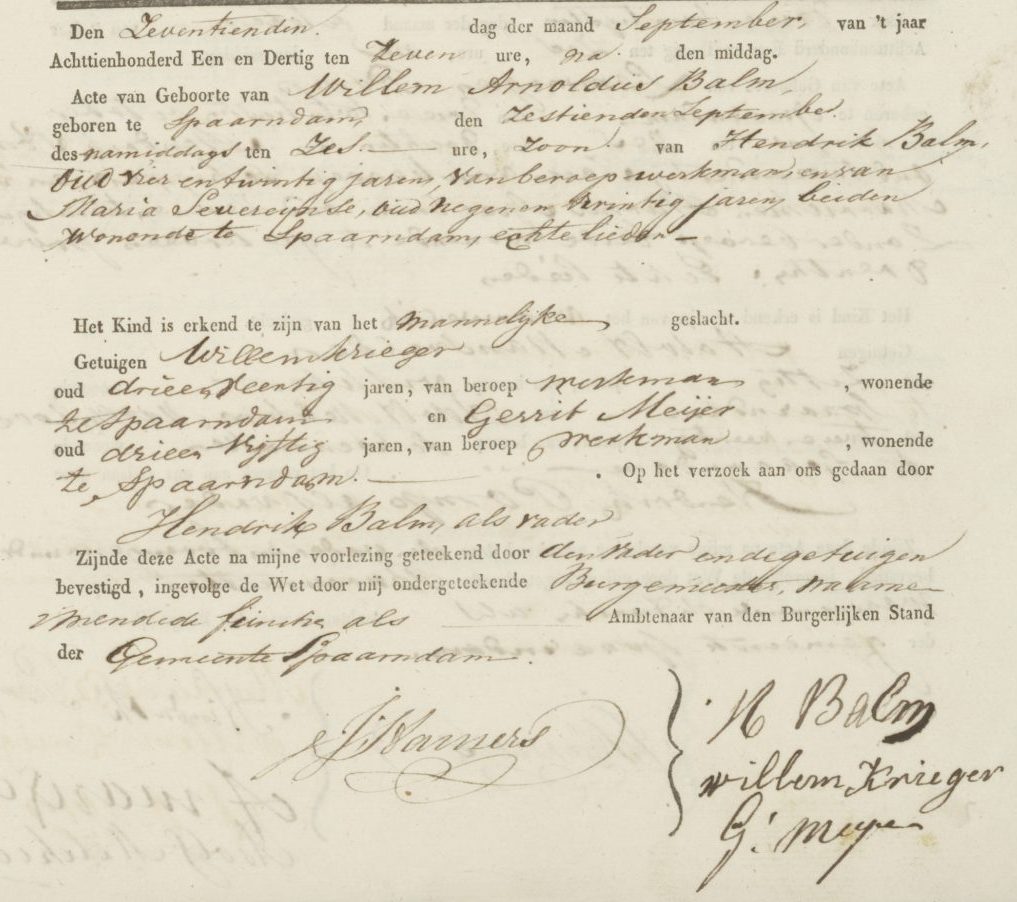 Den Zeventienden dag der maand September van 't jaar
Achttienhonderd Een en Dertig ten Zeven ure, na den middag.
Acte van Geboorte van Willem Arnoldus Balm,
geboren te Spaarndam, den Zestienden September
des namiddags ten Zes ure, Zoon van Hendrik Balm,
Oud vier en twintig jaren, van beroep werkman, en van
Maria Severeijnse, oud negen en twintig jaren, beiden
Wonende te Spaarndam, echte lieden
Het Kind is erkend te zijn van het mannelijke geslacht.
Getuigen Willem Krieger
oud drie en veertig jaren, van beroep werkman, wonende
te Spaarndam en Gerrit Meijer
oud drie en vijftig jaren, van beroep werkman, wonende
te Spaarndam. Op het verzoek aan ons gedaan door
Hendrik Balm, als vader
Zijnde deze Acte na mijne voorlezing geteekend door den vader en de getuigen
bevestigd, ingevolge de Wet door mij ondergeteekende Burgemeester, waarne
mende de functie als Ambtenaar van den Burgerlijken Stand
der Gemeente Spaarndam.
H Balm
willem Krieger
G. meyer